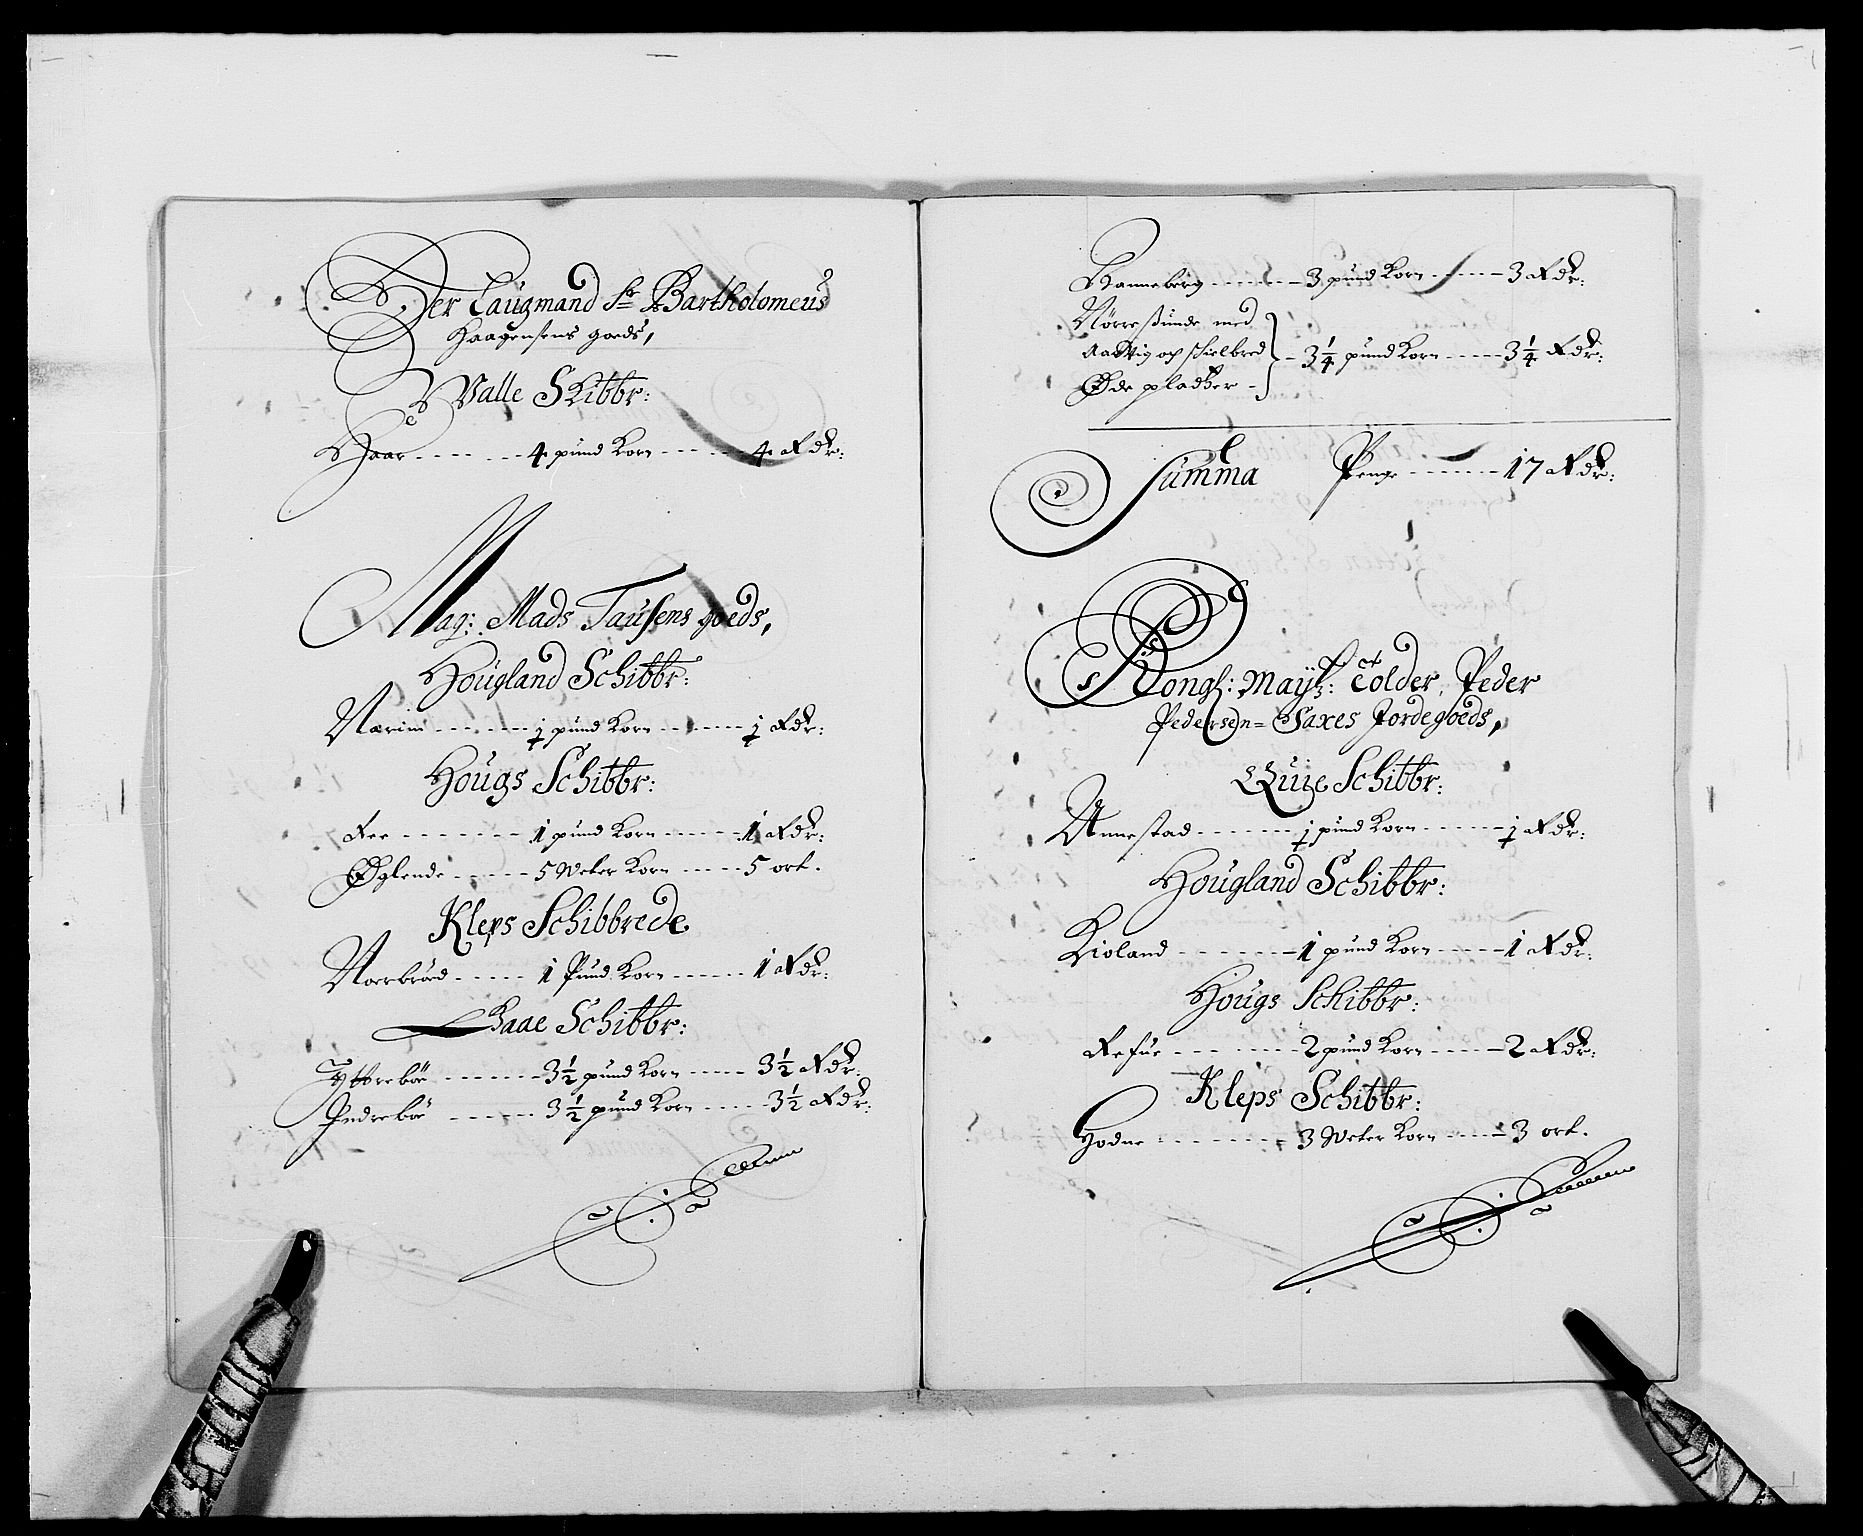 Her Laugmand Sr Bartholomeus
Haagensens goeds,
Walle Skibbr:
Haar - - - - - - 4 pund Korn - - - - - 4 Rdr:
Mag: Mads Tausens goeds,
Hougland Schibbr:
Nærim - - - - - ½ pund Korn - - - - - ½ Rdr:
Hougs Schibbr:
Ree - - - - - - - 1 pund Korn - - - - - 1 Rdr:
Øglende - - - - - 5 Weter Korn - - - - 5 ort.
Kleps Schibbrede
Noerbrød - - - - - 1 Pund Korn - - - - - 1 Rdr:
Haae Schibbr:
Yttrebøe - - - - - - 3½ pund Korn - - - - 3½ Rdr:
Indrebøe - - - - - 3½ pund Korn - - - - 3½ Rdr:
Hanneberg - - - - - - 3 pund Korn - - - - - 3 Rdr:
Nørresunde med
Aadwig och Skielbred - 3¼ pund Korn - - - - 3¼ Rdr:
Øde pladtzer -
Summa Penge - - - - - - 17 Rdr:
Kongl: Mayts: Tolder, Peder
Pedersen = Saxes Jordegoeds,
Quie Schibbr:
Unnestad - - - - - - ½ pund Korn - - - - - ½ Rdr:
Hougland Schibbr:
Kioland - - - - - - - 1 pund Korn - - - - - 1 Rdr:
Hougs Schibbr:
Refue - - - - - - - 2 pund Korn - - - - - 2 Rdr:
Kleps Schibbr:
Hodne - - - - - - - - 3 Weter Korn - - - - 3 ort.